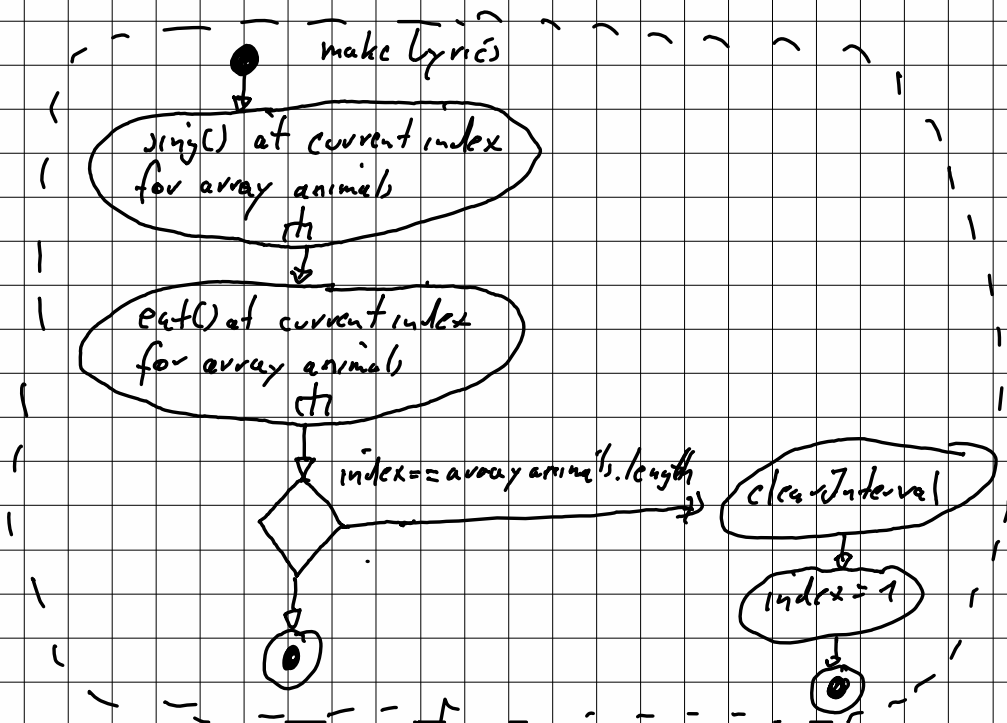 make lyrics
sing() at current index
for array animals
eat() at current index
for array animals
index == array animals.length
clearInterval
index = 1